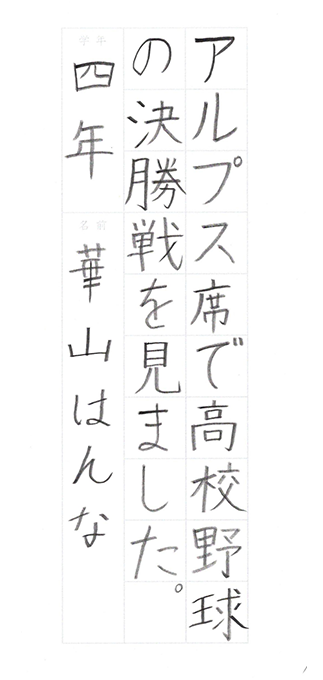 アルプス席で高校野球
の決勝戦を見ました。
学年
四年
名前
華山はんな